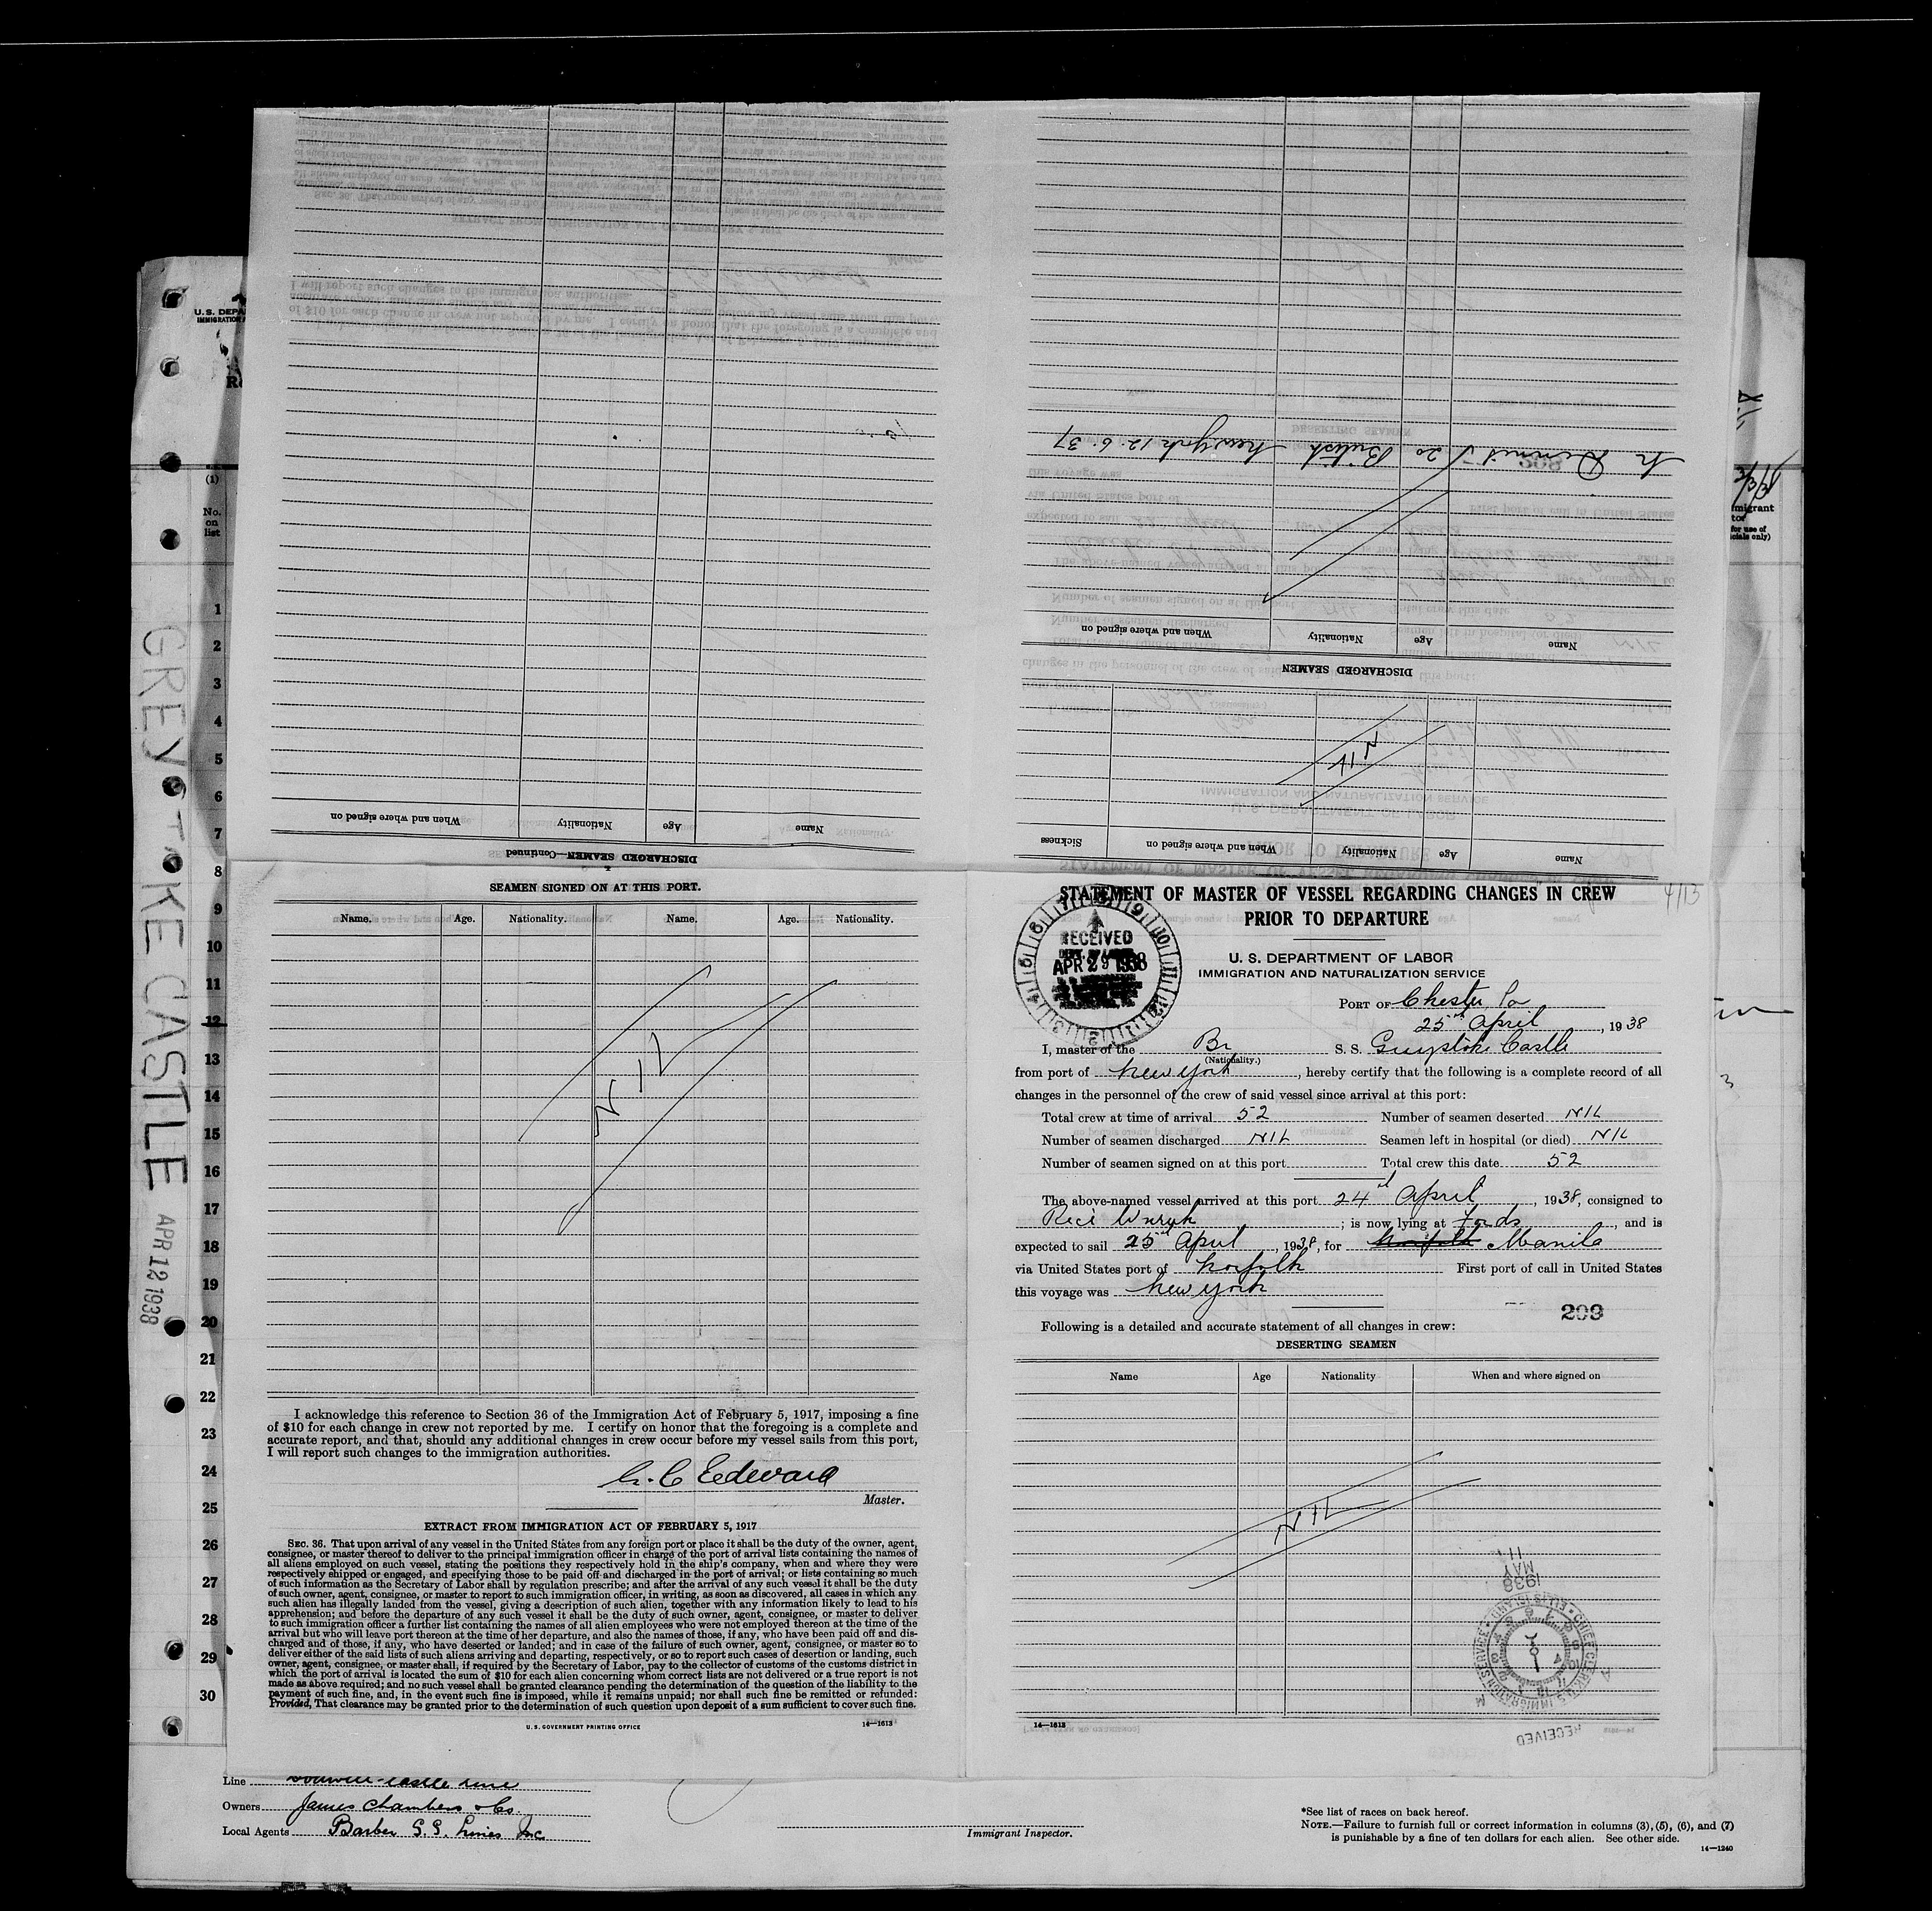 U.S. DEPA
IMMIGRATION
(1)
No.
on
list
1
2
3
4
5
6
7
8
9
10
11
12
13
14
15
16
17
18
19
20
21
22
23
24
25
26
27
28
29
30
GREYSTOKE CASTLE APR 12 1938
migrant
tor
for use of
icials only)
DISCHARGED SEAMEN—Continued
Name Age Nationality When and where signed on
Name Age Nationality When and where signed on Sickness
NIL
DISCHARGED SEAMEN
Name Age Nationality When and where signed on
20 British New York 12.6.37
SEAMEN SIGNED ON AT THIS PORT.
Name. Age. Nationality. Name. Age. Nationality.
NIL
I acknowledge this reference to Section 36 of the Immigration Act of February 5, 1917, imposing a fine
of $10 for each change in crew not reported by me. I certify on honor that the foregoing is a complete and
accurate report, and that, should any additional changes in crew occur before my vessel sails from this port,
I will report such changes to the immigration authorities.
Master.
EXTRACT FROM IMMIGRATION ACT OF FEBRUARY 5, 1917
SEC. 36. That upon arrival of any vessel in the United States from any foreign port or place it shall be the duty of the owner, agent,
consignee, or master thereof to deliver to the principal immigration officer in charge of the port of arrival lists containing the names of
all aliens employed on such vessel, stating the positions they respectively hold in the ship's company, when and where they were
respectively shipped or engaged, and specifying those to be paid off and discharged in the port of arrival; or lists containing so much
of such information as the Secretary of Labor shall by regulation prescribe; and after the arrival of any such vessel it shall be the duty
of such owner, agent, consignee, or master to report to such immigration officer, in writing, as soon as discovered, all cases in which any
such alien has illegally landed from the vessel, giving a description of such alien, together with any information likely to lead to his
apprehension; and before the departure of any such vessel it shall be the duty of such owner, agent, consignee, or master to deliver
to such immigration officer a further list containing the names of all alien employees who were not employed thereon at the time of the
arrival but who will leave port thereon at the time of her departure, and also the names of those, if any, who have been paid off and dis-
charged and of those, if any, who have deserted or landed; and in case of the failure of such owner, agent, consignee, or master so to
deliver either of the said lists of such aliens arriving and departing, respectively, or so to report such cases of desertion or landing, such
owner, agent, consignee, or master shall, if required by the Secretary of Labor, pay to the collector of customs of the customs district in
which the port of arrival is located the sum of $10 for each alien concerning whom correct lists are not delivered or a true report is not
made as above required; and no such vessel shall be granted clearance pending the determination of the question of the liability to the
payment of such fine, and, in the event such fine is imposed, while it remains unpaid; nor shall such fine be remitted or refunded:
Provided, That clearance may be granted prior to the determination of such question upon deposit of a sum sufficient to cover such fine.
U. S. GOVERNMENT PRINTING OFFICE 14—1613
STATEMENT OF MASTER OF VESSEL REGARDING CHANGES IN CREW
PRIOR TO DEPARTURE
4/13
RECEIVED
APR 29 1938
U. S. DEPARTMENT OF LABOR
IMMIGRATION AND NATURALIZATION SERVICE
PORT OF Chester Pa
25th April, 1938
I, master of the Br S. S. Greystoke Castle
(Nationality.)
from port of New York, hereby certify that the following is a complete record of all
changes in the personnel of the crew of said vessel since arrival at this port:
Total crew at time of arrival 52 Number of seamen deserted NIL
Number of seamen discharged NIL Seamen left in hospital (or died) NIL
Number of seamen signed on at this port Total crew this date 52
The above-named vessel arrived at this port 24 April, 1938, consigned to
; is now lying at Fords, and is
expected to sail 25th April, 1938, for Norfolk Manila
via United States port of Norfolk First port of call in United States
this voyage was New York
209
Following is a detailed and accurate statement of all changes in crew:
DESERTING SEAMEN
Name Age Nationality When and where signed on
NIL
MAY
1938
CHIEF CLERK U.S. IMMIGRATION SERVICE ELLIS ISLAND
RECEIVED
14—1613
Line
Owners James Chambers & Co.
Local Agents Barber S.S. Lines Inc
Immigrant Inspector.
*See list of races on back hereof.
NOTE.—Failure to furnish full or correct information in columns (3), (5), (6), and (7)
is punishable by a fine of ten dollars for each alien. See other side.
14—1240